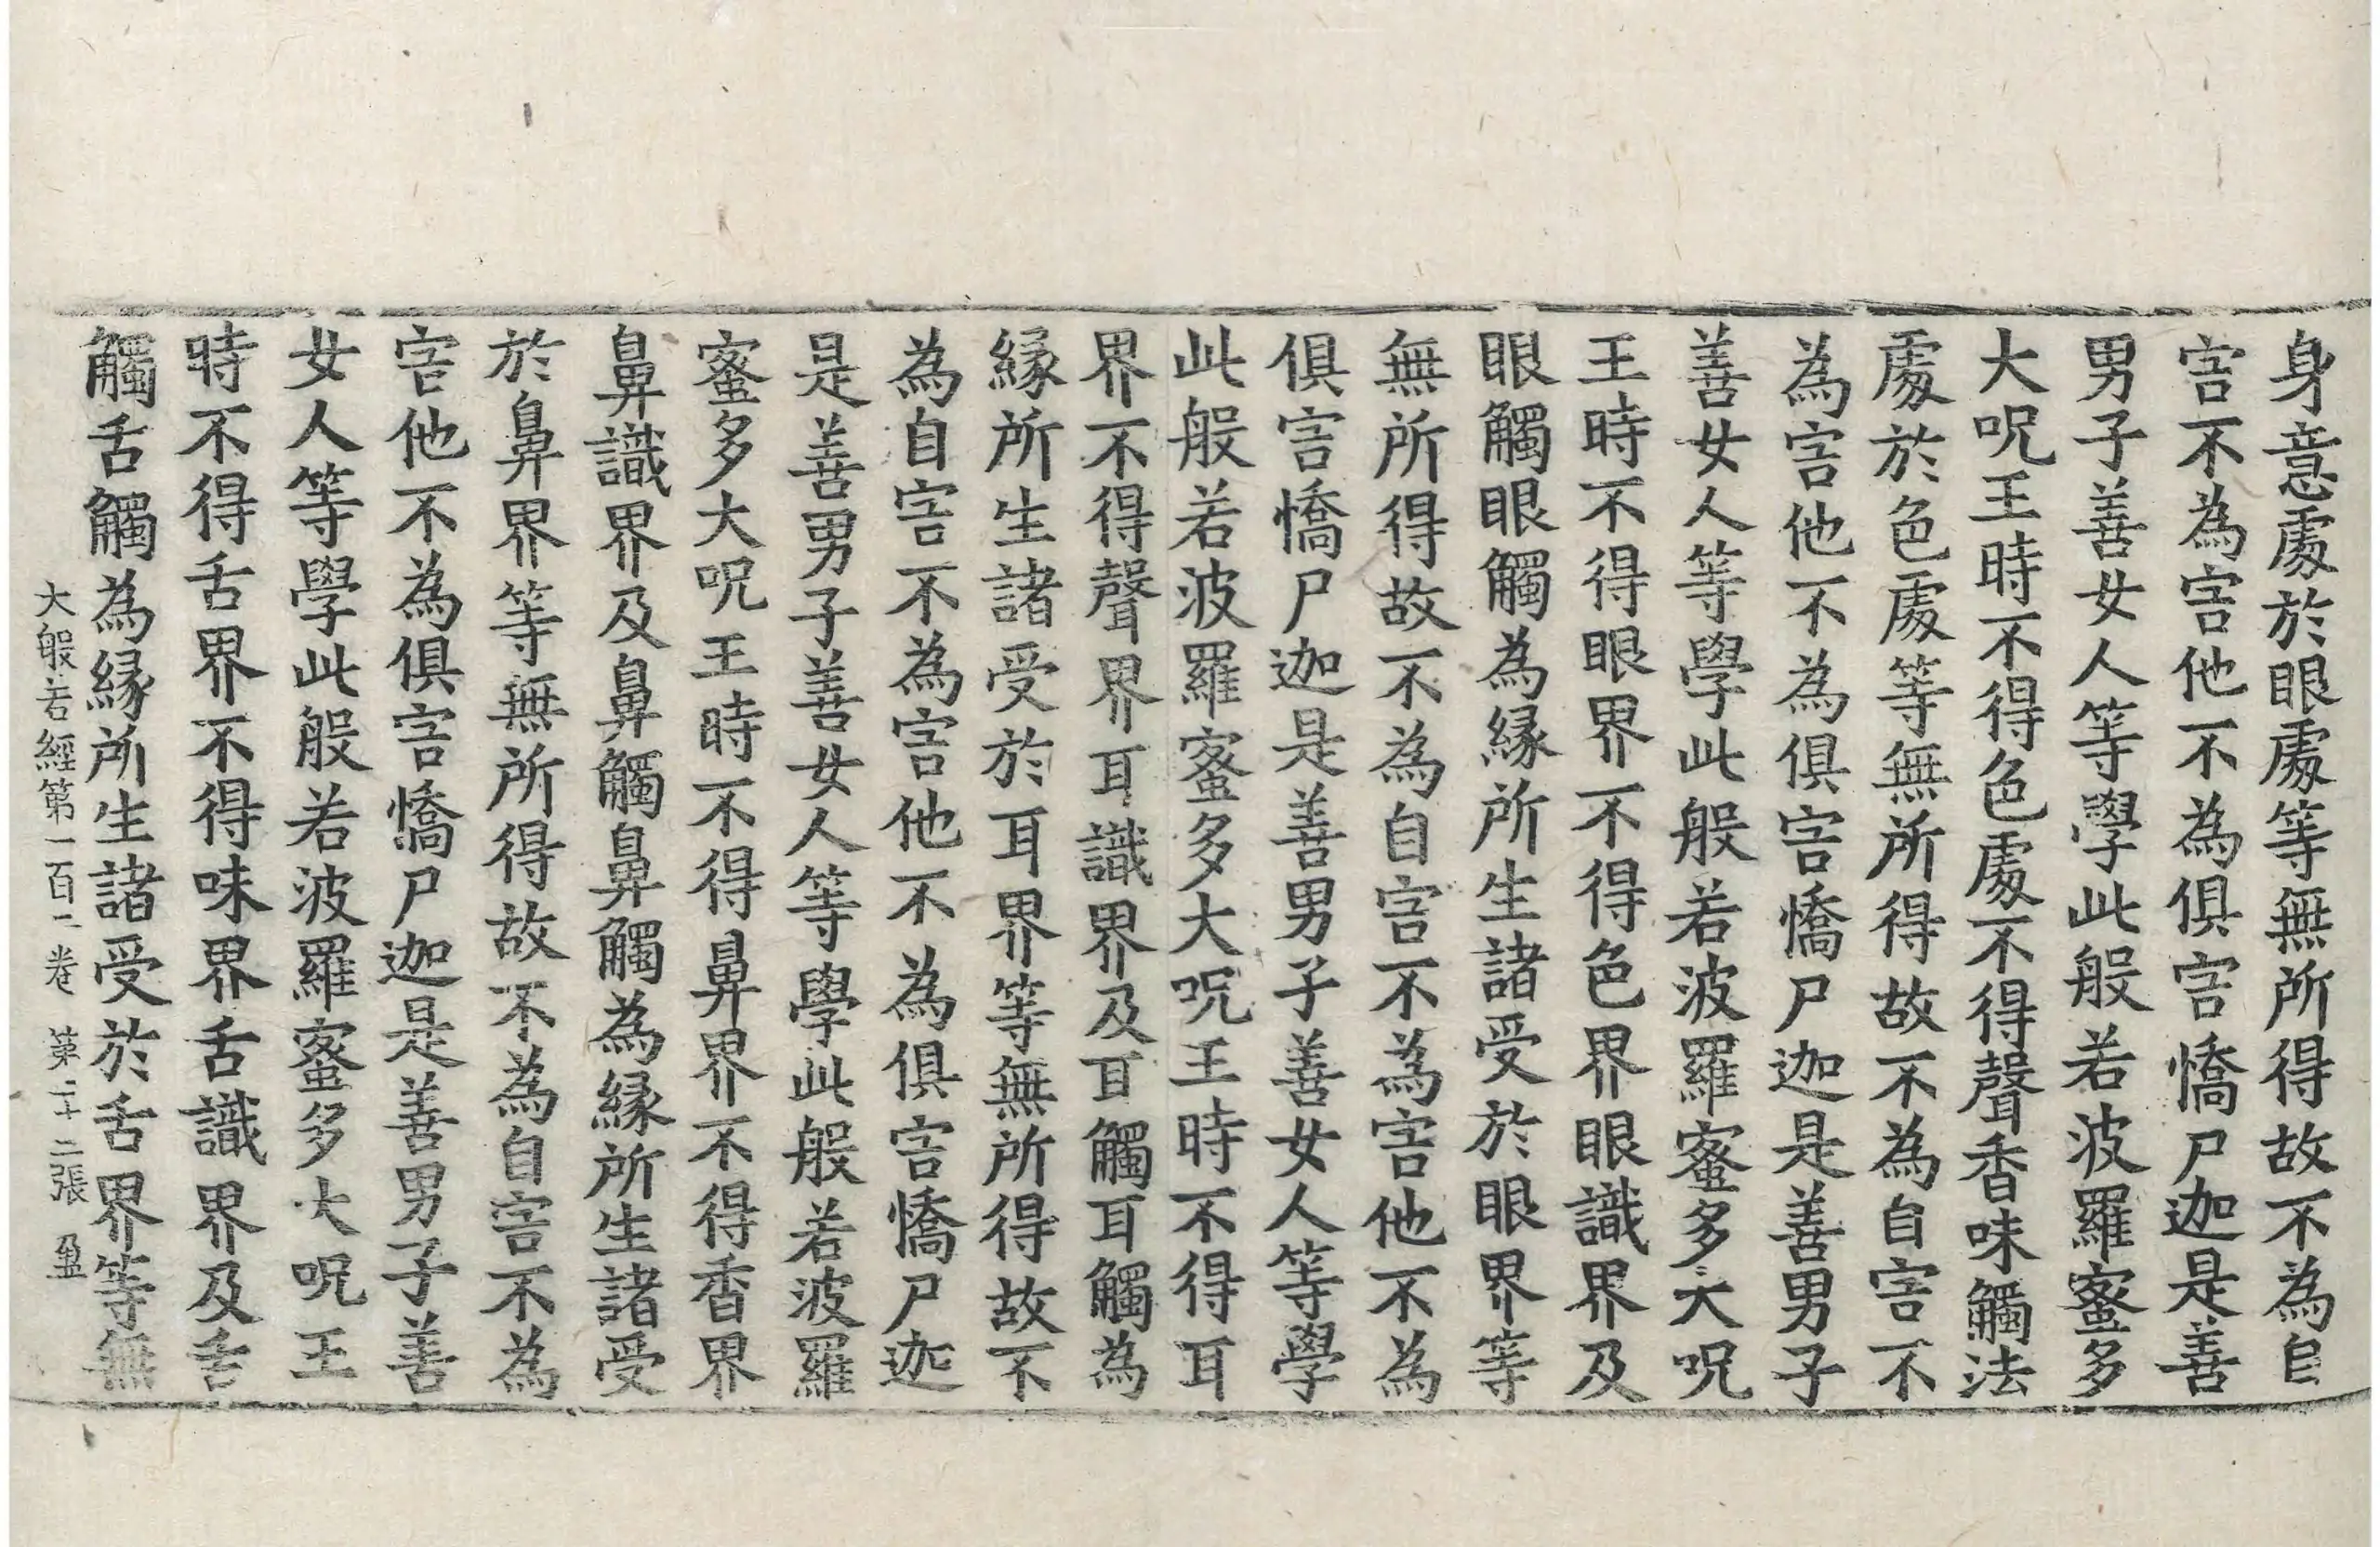 身意處於眼處等無所得故不為自
害不為害他不為俱害憍尸迦是善
男子善女人等學此般若波羅蜜多
大呪王時不得色處不得聲香味觸法
處於色處等無所得故不為自害不
為害他不為俱害憍尸迦是善男子
善女人等學此般若波羅蜜多大呪
王時不得眼界不得色界眼識界及
眼觸眼觸為緣所生諸受於眼界等
無所得故不為自害不為害他不為
俱害憍尸迦是善男子善女人等學
此般若波羅蜜多大呪王時不得耳
界不得聲界耳識界及耳觸耳觸為
緣所生諸受於耳界等無所得故不
為自害不為害他不為俱害憍尸迦
是善男子善女人等學此般若波羅
蜜多大呪王時不得鼻界不得香界
鼻識界及鼻觸鼻觸為緣所生諸受
於鼻界等無所得故不為自害不為
害他不為俱害憍尸迦是善男子善
女人等學此般若波羅蜜多大呪王
時不得舌界不得味界舌識界及舌
觸舌觸為緣所生諸受於舌界等無
大般若經第一百二卷 第二十二張 盈